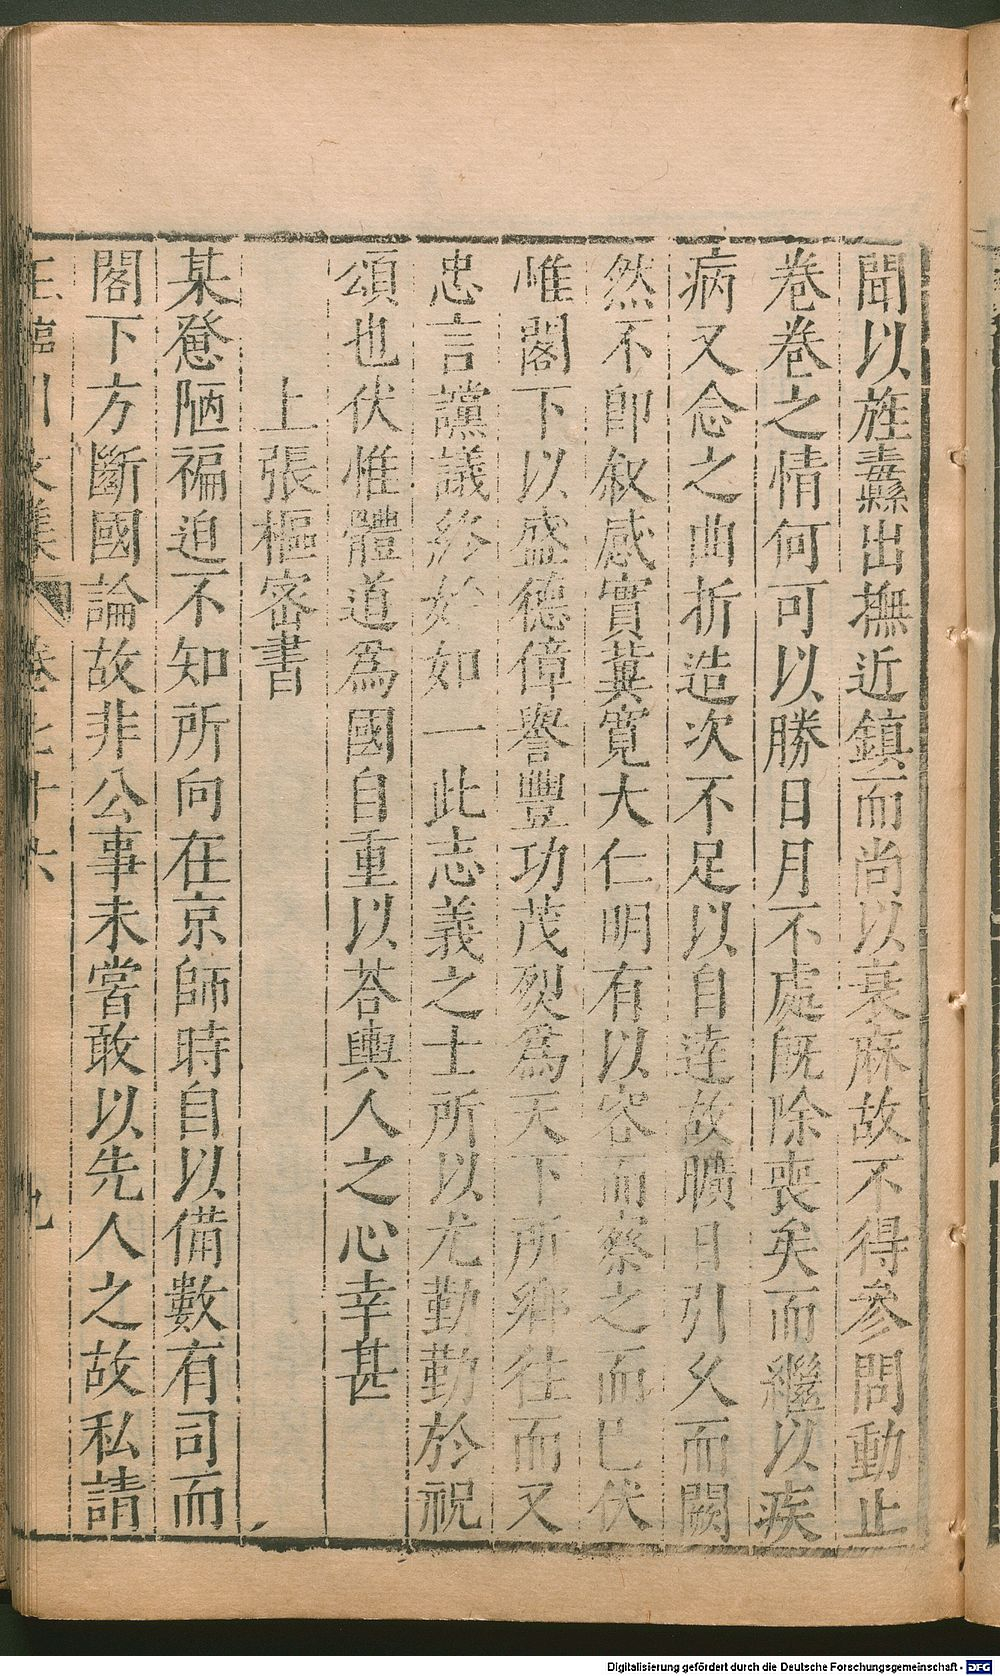 聞以旌纛出撫近鎮而尚以衰麻故不得參問動止
卷卷之情何可以勝日月不處旣除喪矣而繼以疾
病又念之曲折造次不足以自達故曠日引久而闕
然不卽叙感實冀寬大仁明有以容而察之而已伏
惟閣下以盛德偉譽豐功茂烈爲天下所鄉往而又
忠言讜議終始如一此志義之士所以尤勤勤於祝
頌也伏惟體道爲國自重以荅輿人之心幸甚
上張樞密書
某愚陋褊迫不知所向在京師時自以備數有司而
閣下方斷國論故非公事未嘗敢以先人之故私請
王臨川文集 卷七十六 九
Digitalisierung gefördert durch die Deutsche Forschungsgemeinschaft - DFG